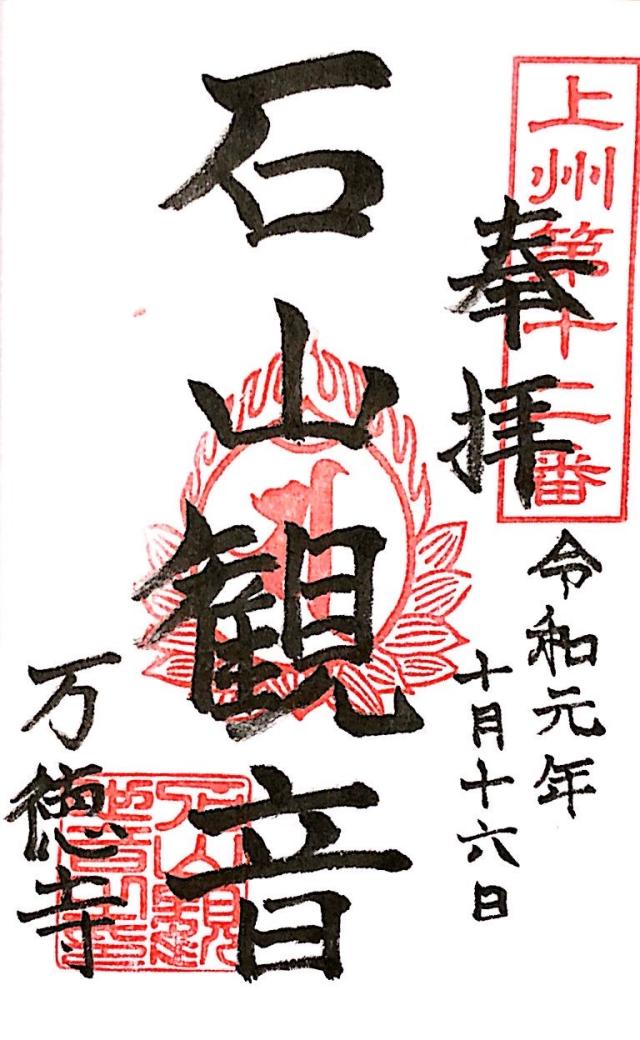 上州第十二番
奉拝
令和元年
十月十六日
石山観音
万徳寺